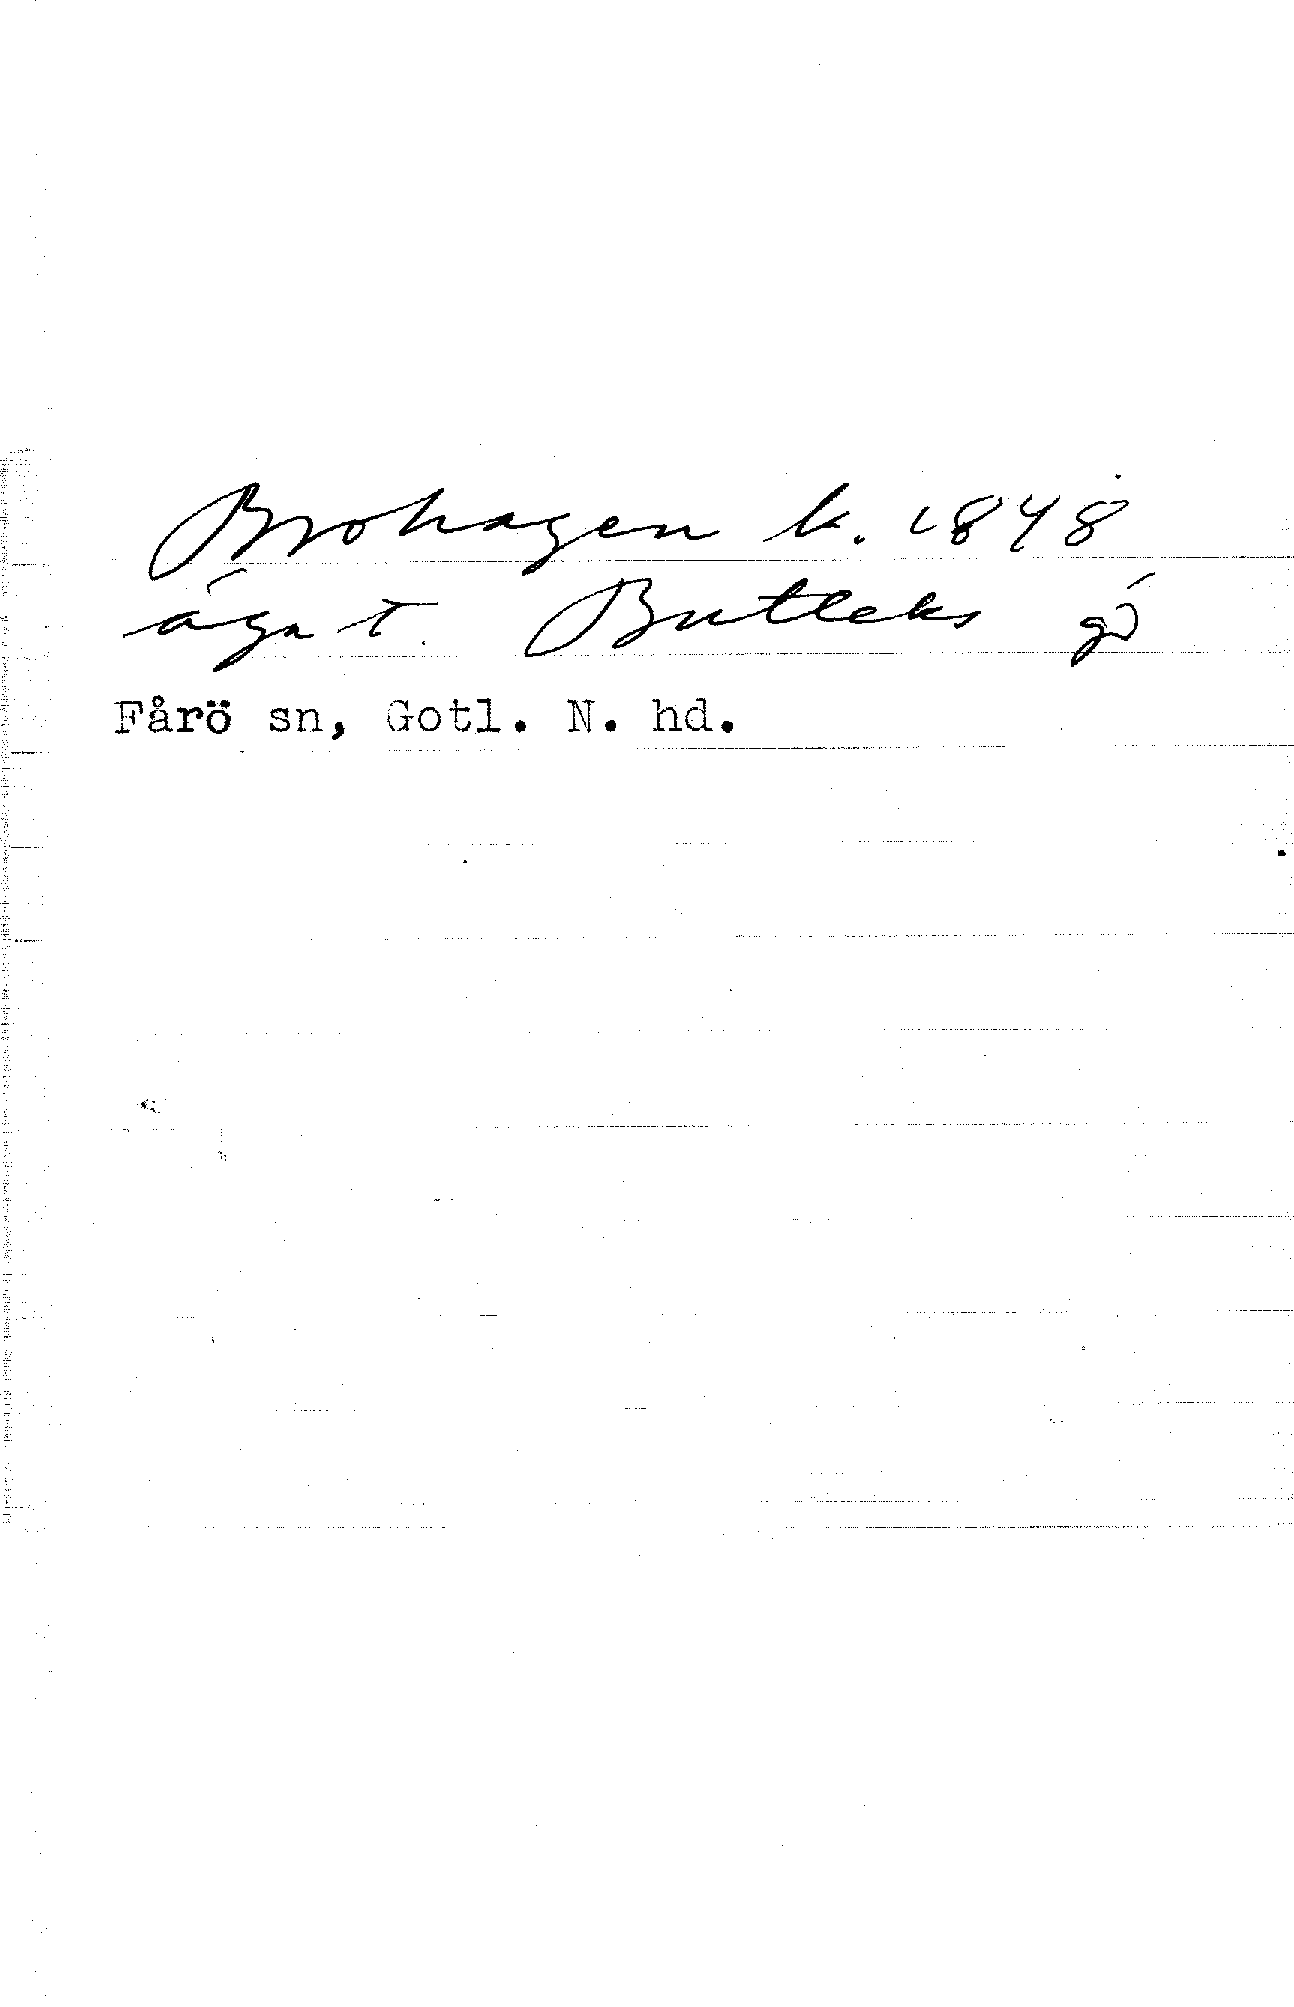 Brohagen k. 1848
äga t. Butleks gd
Fårö sn, Gotl. N. hd.